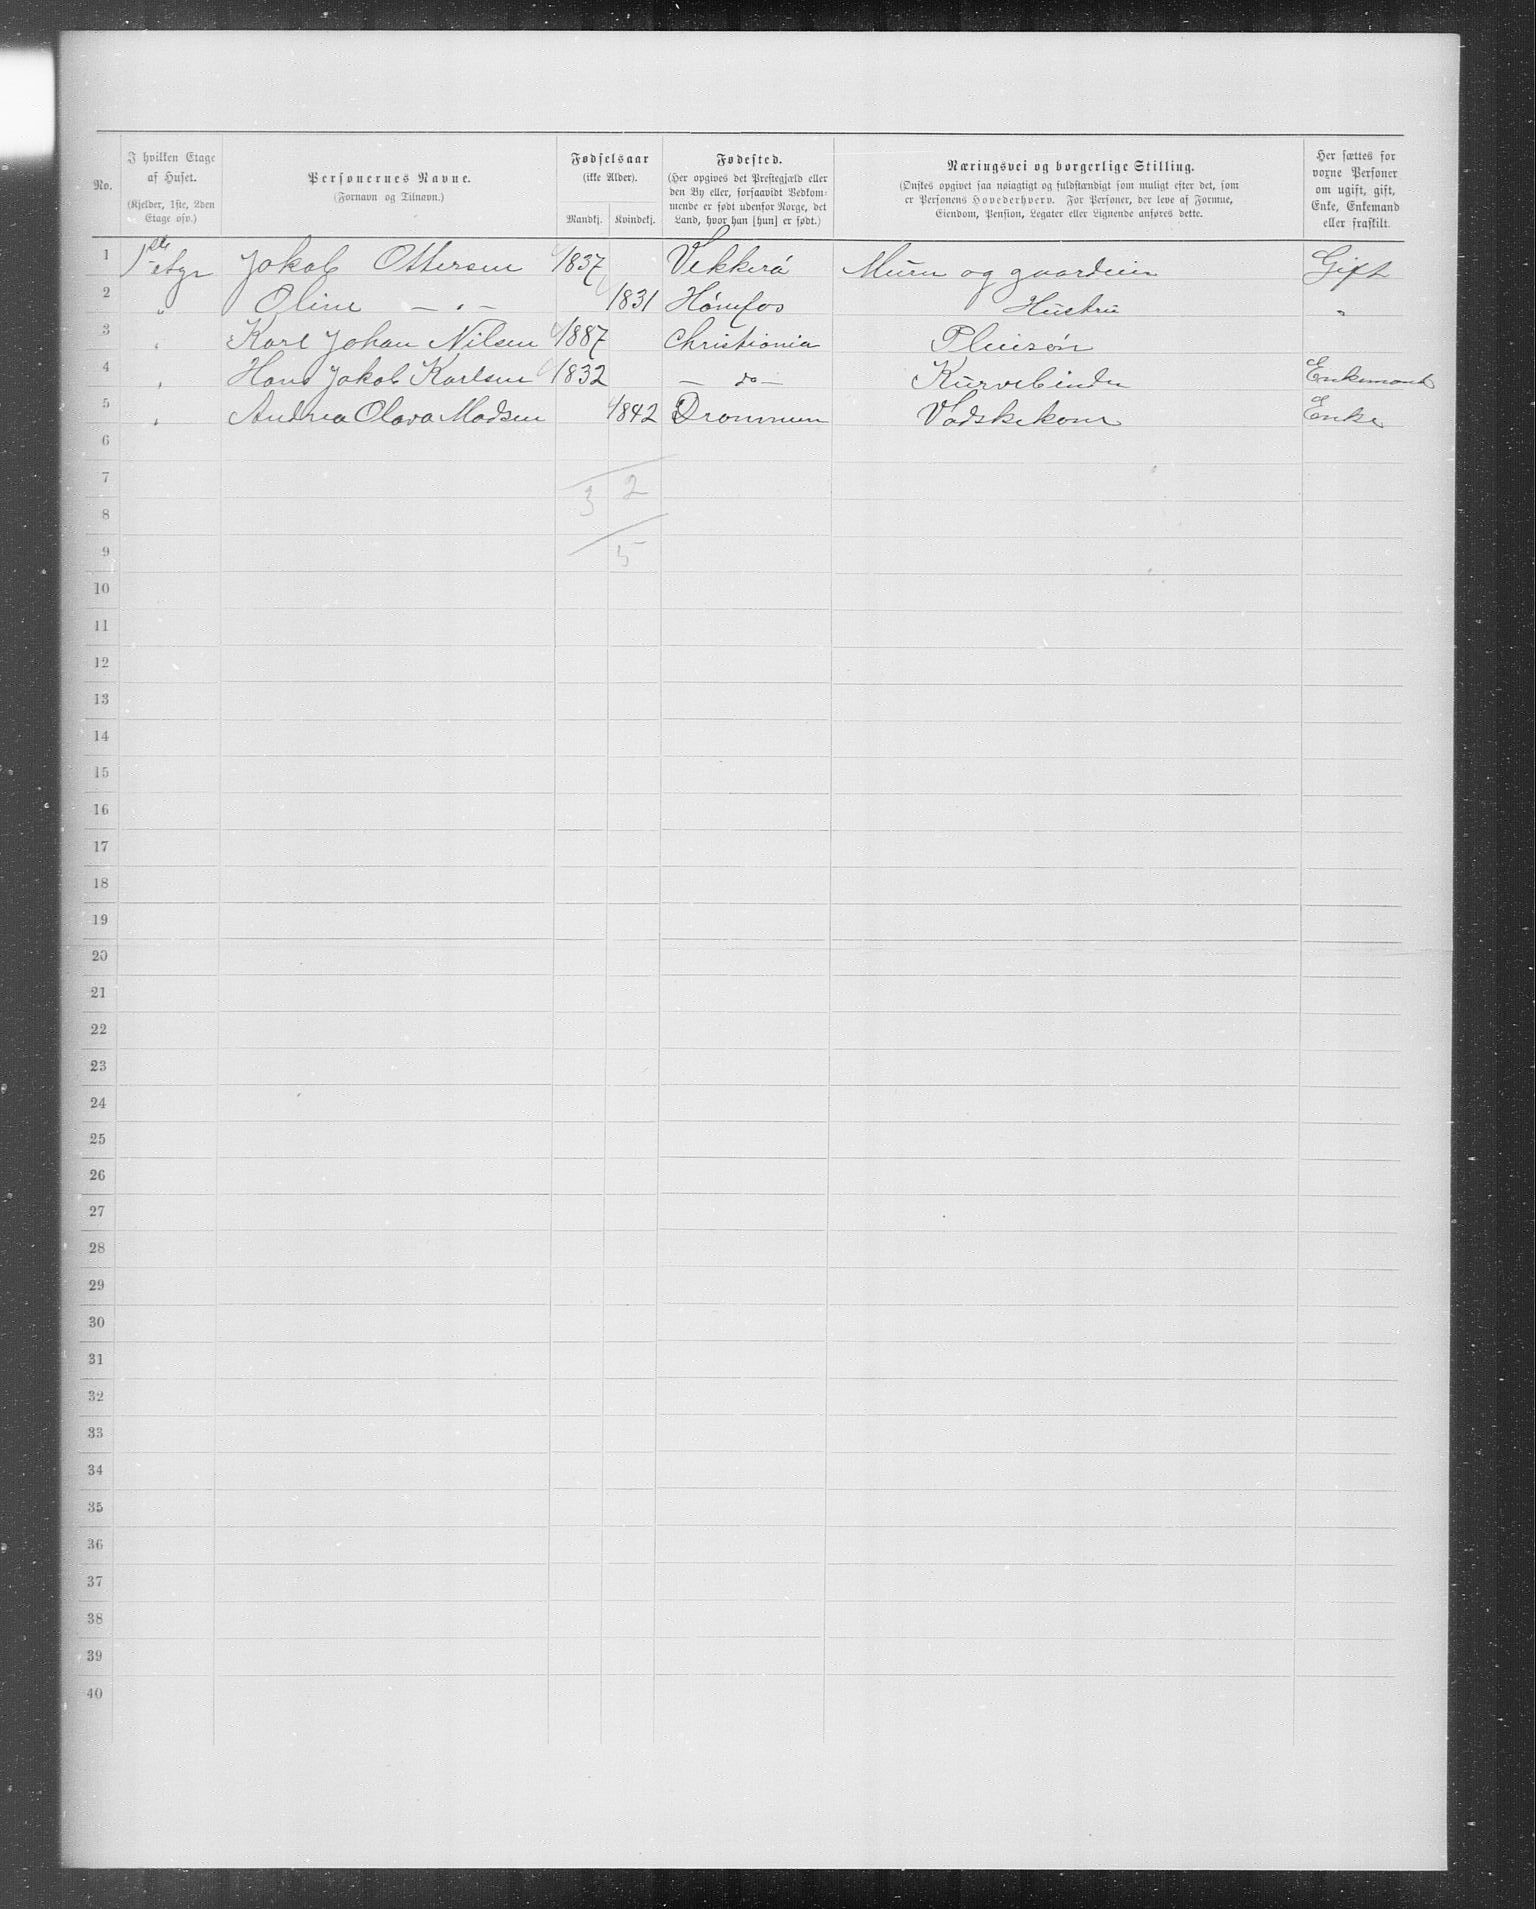 No.
I hvilken Etage af Huset.
(Kjelder, 1ste, 2den Etage osv.)
Personernes Navne.
(Fornavn og Tilnavn.)
Fødselsaar
(ikke Alder).
Mandkj. Kvindekj.
Fødested.
(Her opgives det Prestegjæld eller
den By eller, forsaavidt Vedkom-
mende er født udenfor Norge, det
Land, hvor han [hun] er født.)
Næringsvei og borgerlige Stilling.
(Ønskes opgivet saa nøiagtigt og fuldstændigt som muligt efter det, som
er Personens Hovederhverv. For Personer, der leve af Formue,
Eiendom, Pension, Legater eller Lignende anføres dette.
Her sættes for
voxne Personer
om ugift, gift,
Enke, Enkemand
eller fraskilt.
1 1ste etg Jakob Ottersen 1837 Vekkerö Murer og gaardeier Gift
2 " Oline — " — 1831 Hönefos Hustru "
3 " Karl Johan Nilsen 1887 Christiania Pleiesön
4 " Hans Jakob Karlsen 1832 — do — Kurvebinder Enkemand
5 " Andrea Olava Madsen 1842 Drammen Vadskekone Enke
6
7
3 2
8
9
5
10
11
12
13
14
15
16
17
18
19
20
21
22
23
24
25
26
27
28
29
30
31
32
33
34
35
36
37
38
39
40